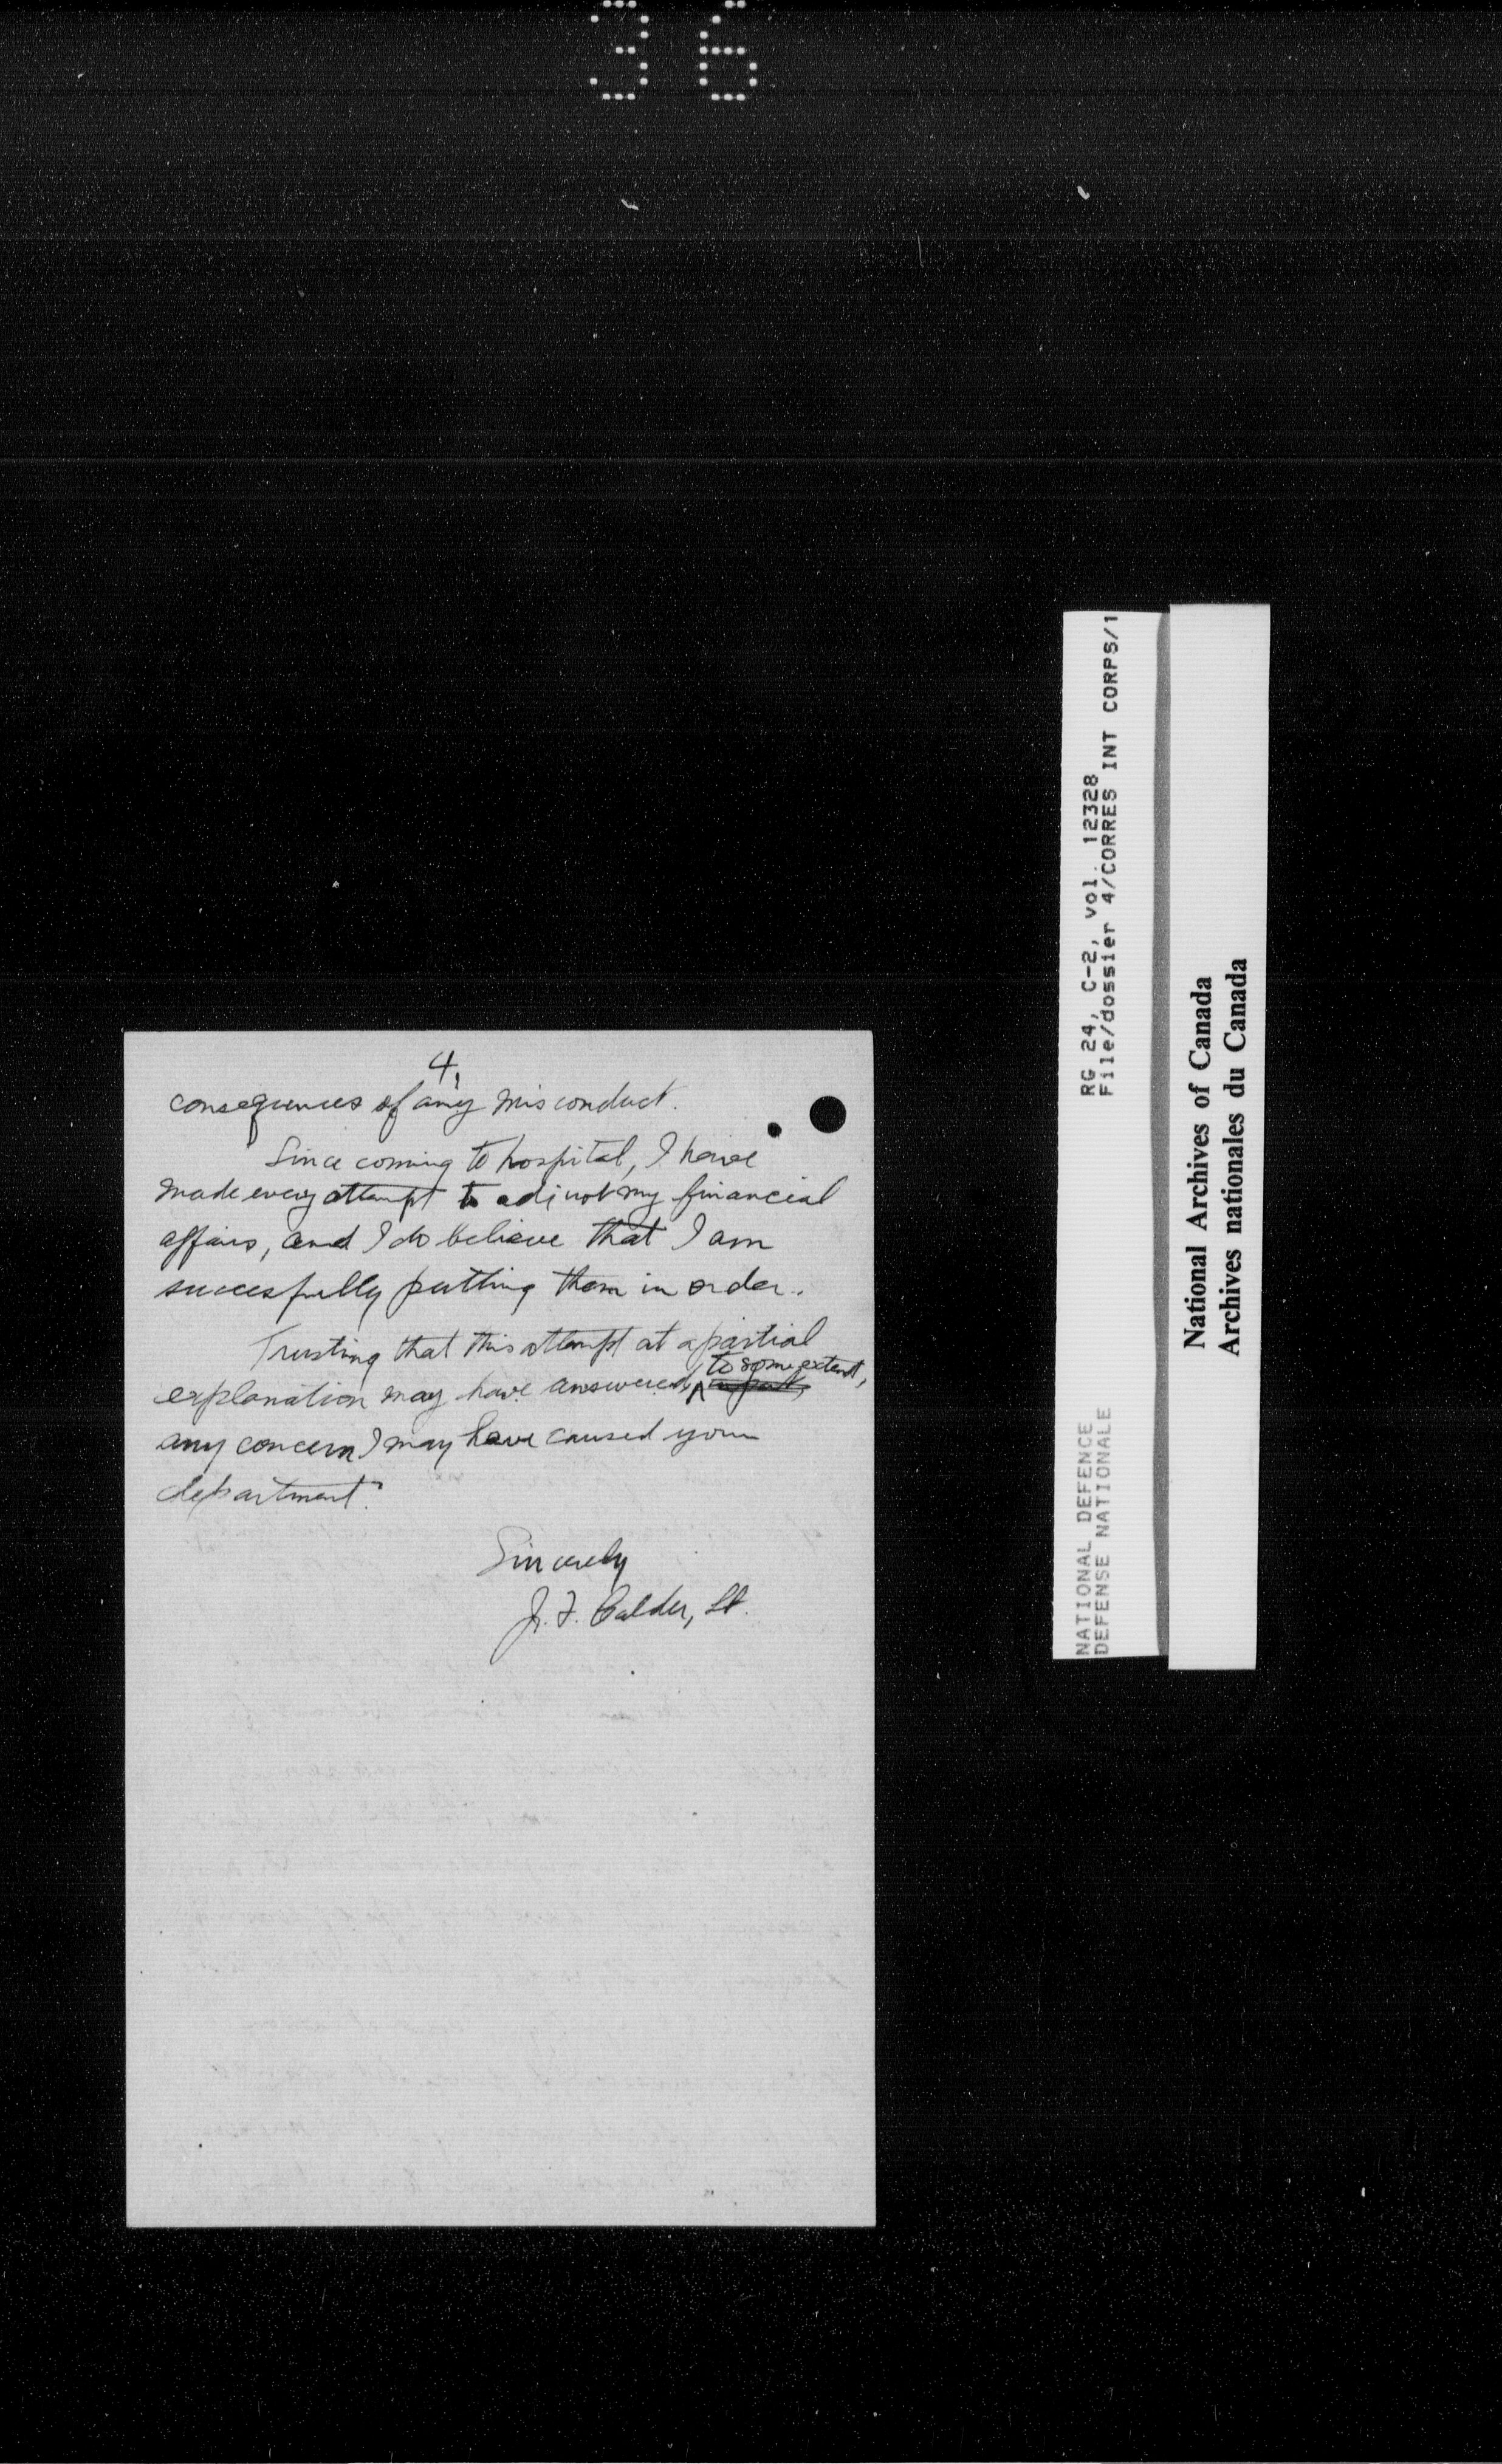 36
4,
consequences of any misconduct.
Since coming to hospital, I have
made every attempt to adjust my financial
affairs, and I do believe that I am
succesfully putting them in order.
Trusting that this attempt at a partial
to some extent,
explanation may have answered, in part,
any concern I may have caused your
department.
Sincerely
J. F. Calder, Lt.
RG 24, C-2, vol. 12328
File/dossier 4/CORRES INT CORPS/1
NATIONAL DEFENCE
DEFENSE NATIONALE
National Archives of Canada
Archives nationales du Canada